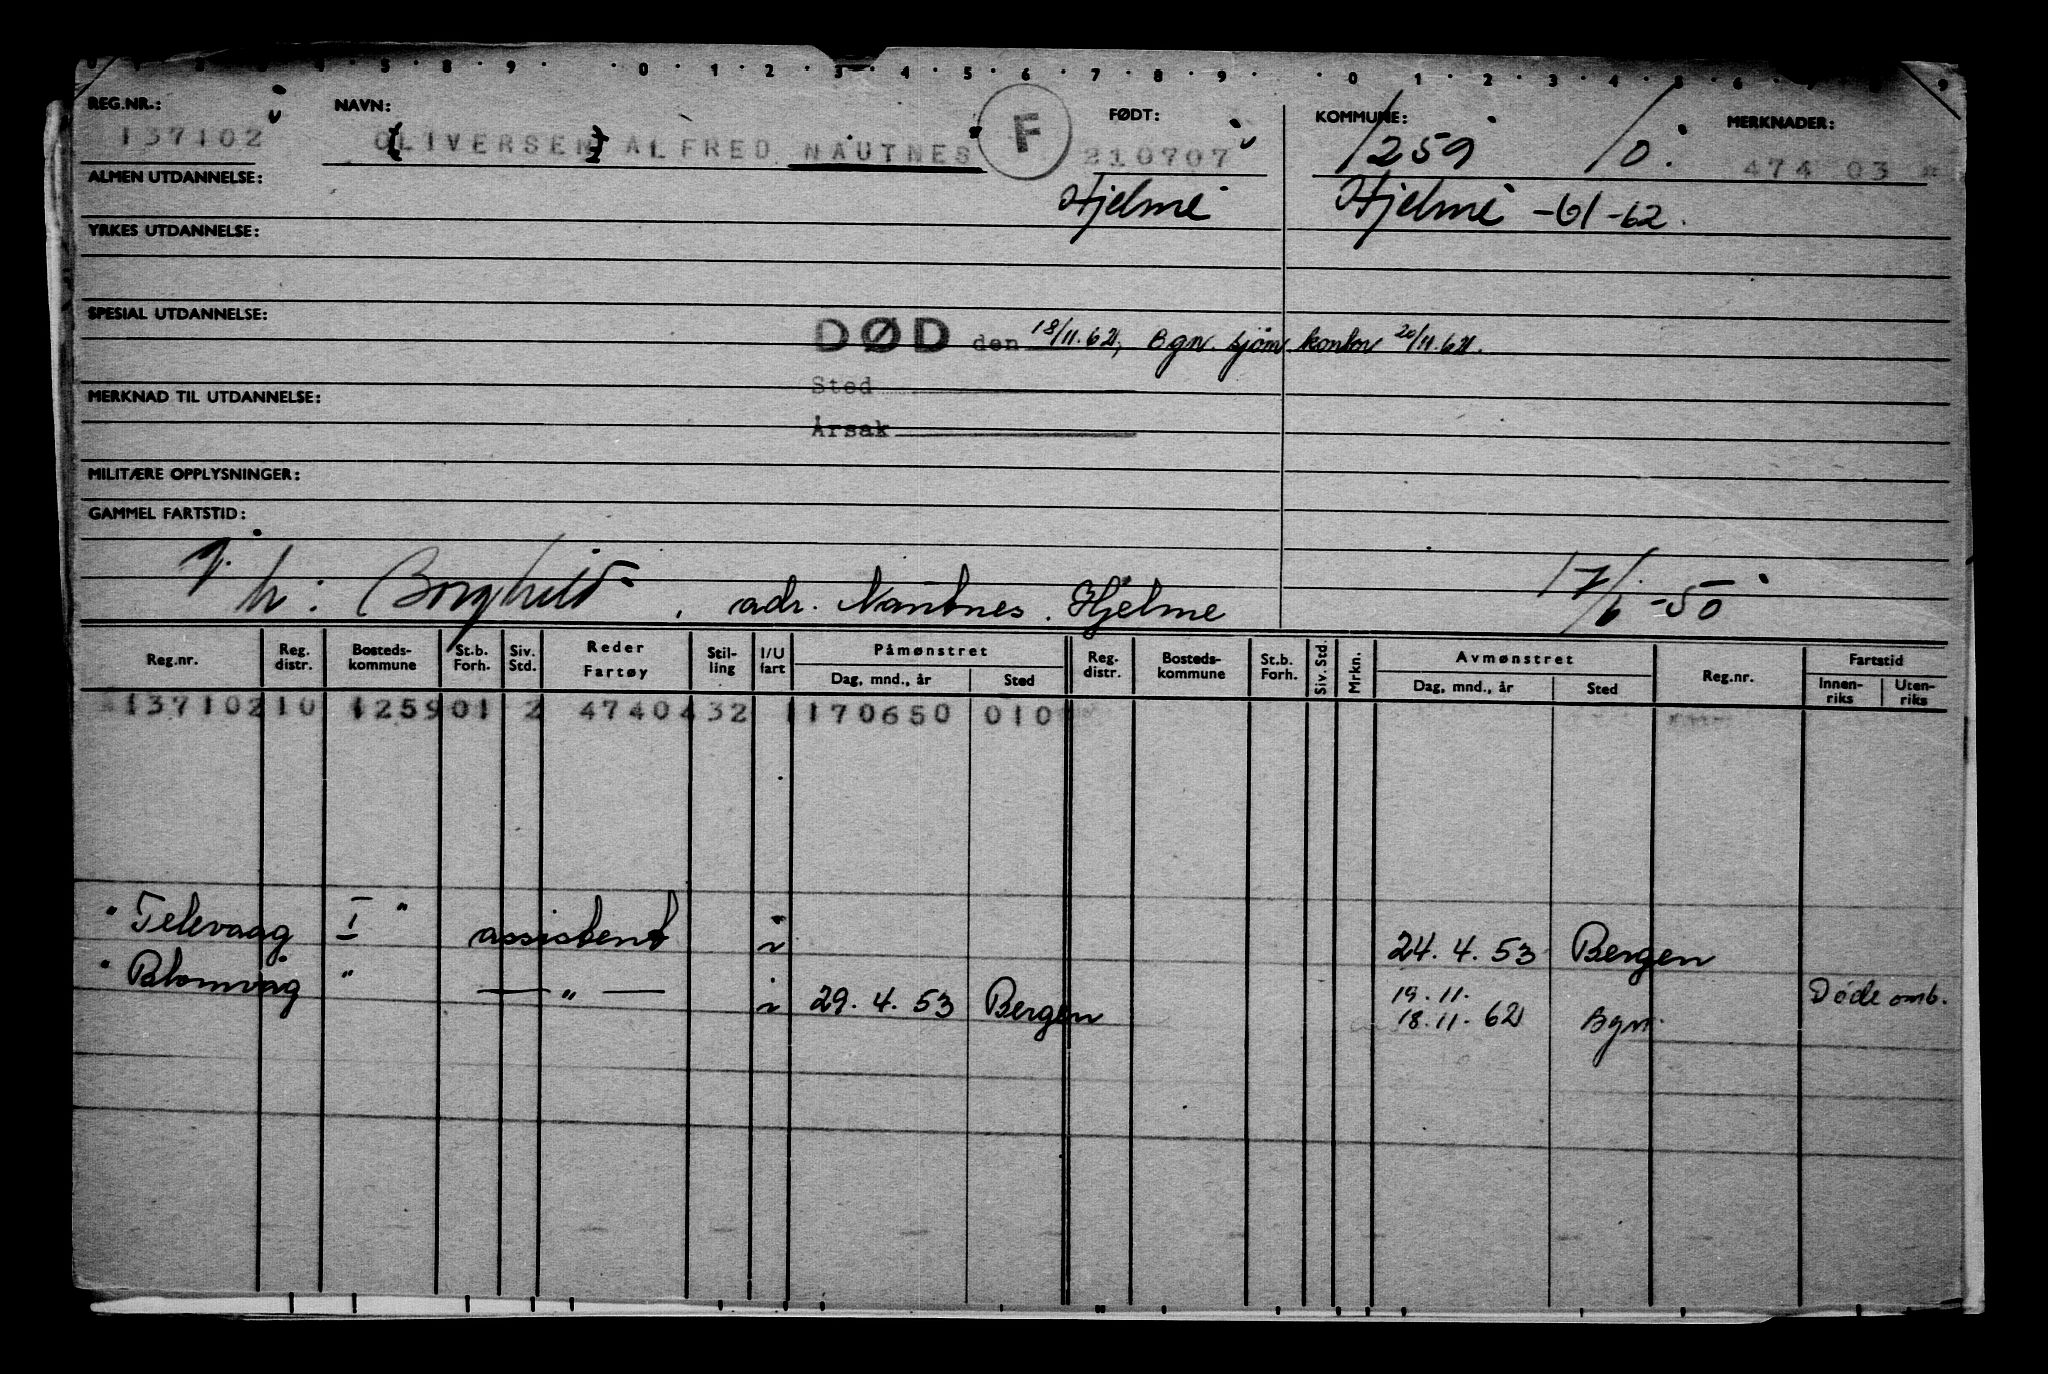 REG.NR.: NAVN: FØDT: KOMMUNE: MERKNADER:
137102 (OLIVERSEN) ALFRED NAUTNES F 210707 1259 10. 474 03
ALMEN UTDANNELSE: Hjelme Hjelme -61-62.
YRKES UTDANNELSE:
SPESIAL UTDANNELSE:
DØD den 18/11.62, Bgn. sjøm. kontor 20/11.62.
Sted
MERKNAD TIL UTDANNELSE:
Årsak
MILITÆRE OPPLYSNINGER:
GAMMEL FARTSTID:
h: Borghild, adr. Nautnes. Hjelme 17/6-50
Reg.nr. Reg. distr. Bosteds-kommune St.b. Forh. Siv. Std. Reder Fartøy Stil-ling I/U fart Påmønstret Dag, mnd., år Sted Reg. distr. Bosteds-kommune St.b. Forh. Siv. Std. Mrkn. Avmønstret Dag, mnd., år Sted Reg.nr. Fartstid Innen-riks Uten-riks
137102 10 1259 01 2 4740432 1 170650 010
" Televaag I " assistent i 24. 4. 53 Bergen
" Blomvåg " — " — i 29. 4. 53 Bergen 19. 11. Døde omb.
18. 11. 62 Bgn.